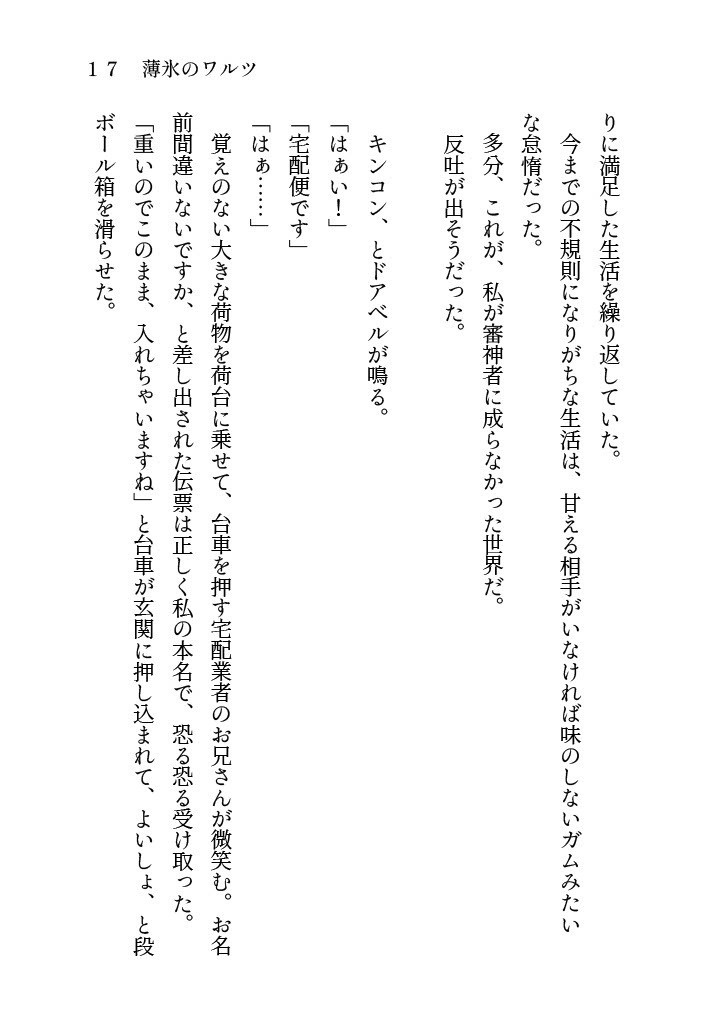 17　薄氷のワルツ
りに満足した生活を繰り返していた。
　今までの不規則になりがちな生活は、甘える相手がいなければ味のしないガムみたい
な怠惰だった。
　多分、これが、私が審神者に成らなかった世界だ。
　反吐が出そうだった。
　キンコン、とドアベルが鳴る。
「はぁい！」
「宅配便です」
「はぁ……」
　覚えのない大きな荷物を荷台に乗せて、台車を押す宅配業者のお兄さんが微笑む。お名
前間違いないですか、と差し出された伝票は正しく私の本名で、恐る恐る受け取った。
「重いのでこのまま、入れちゃいますね」と台車が玄関に押し込まれて、よいしょ、と段
ボール箱を滑らせた。